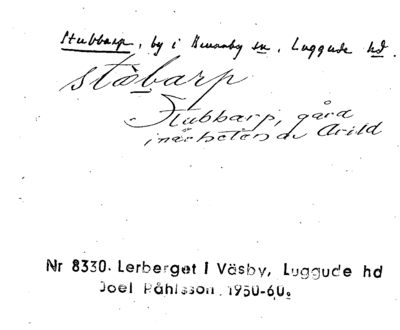 Stubbarp, by i Brunnby sn, Luggude hd.
stòbarp
Stubbarp, gård
i närheten av Arild
Nr 8330. Lerberget i Väsby, Luggude hd
Joel Påhlsson 1950-60.